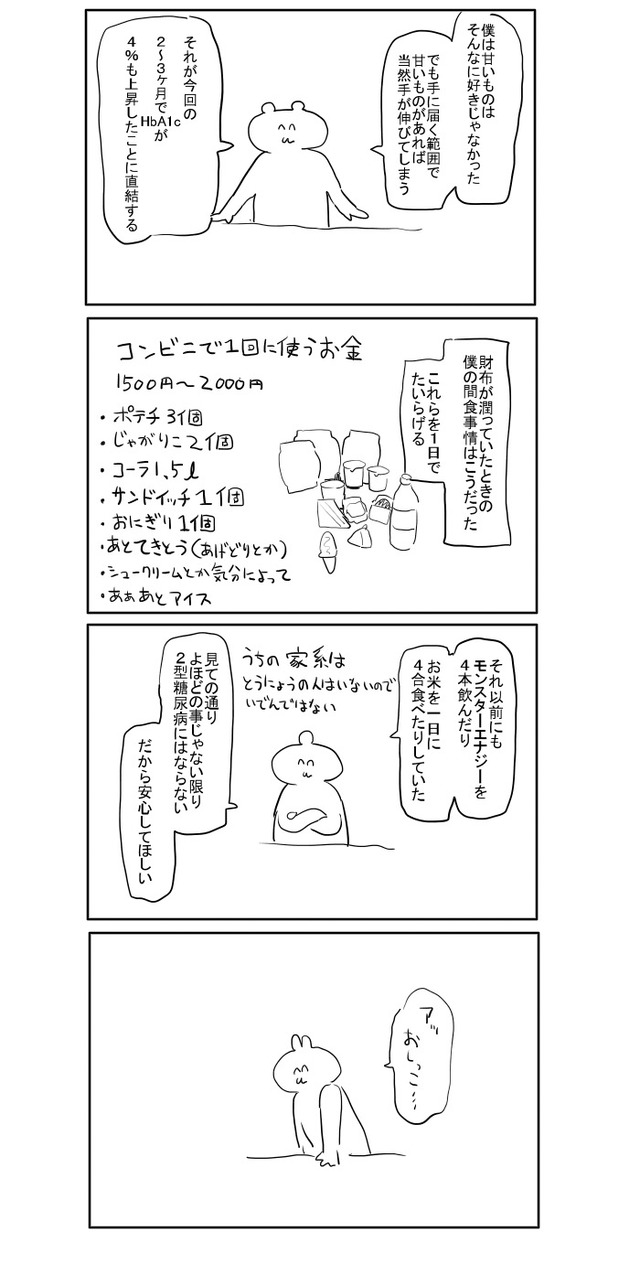 僕は甘いものは
そんなに好きじゃなかった
でも手に届く範囲で
甘いものがあれば
当然手が伸びてしまう
それが今回の
2～3ヶ月で
HbA1cが
4％も上昇したことに直結する
財布が潤っていたときの
僕の間食事情はこうだった
これらを1日で
たいらげる
コンビニで1回に使うお金
1500円～2000円
・ポテチ3個
・じゃがりこ2個
・コーラ1,5ℓ
・サンドイッチ1個
・おにぎり1個
・あとてきとう(あげどりとか)
・シュークリームとか気分によって
・あぁあとアイス
それ以前にも
モンスターエナジーを
4本飲んだり
お米を一日に
4合食べたりしていた
うちの家系は
とうにょうの人はいないので
いでんではない
見ての通り
よほどの事じゃない限り
2型糖尿病にはならない
だから安心してほしい
アッ
おしっこ…